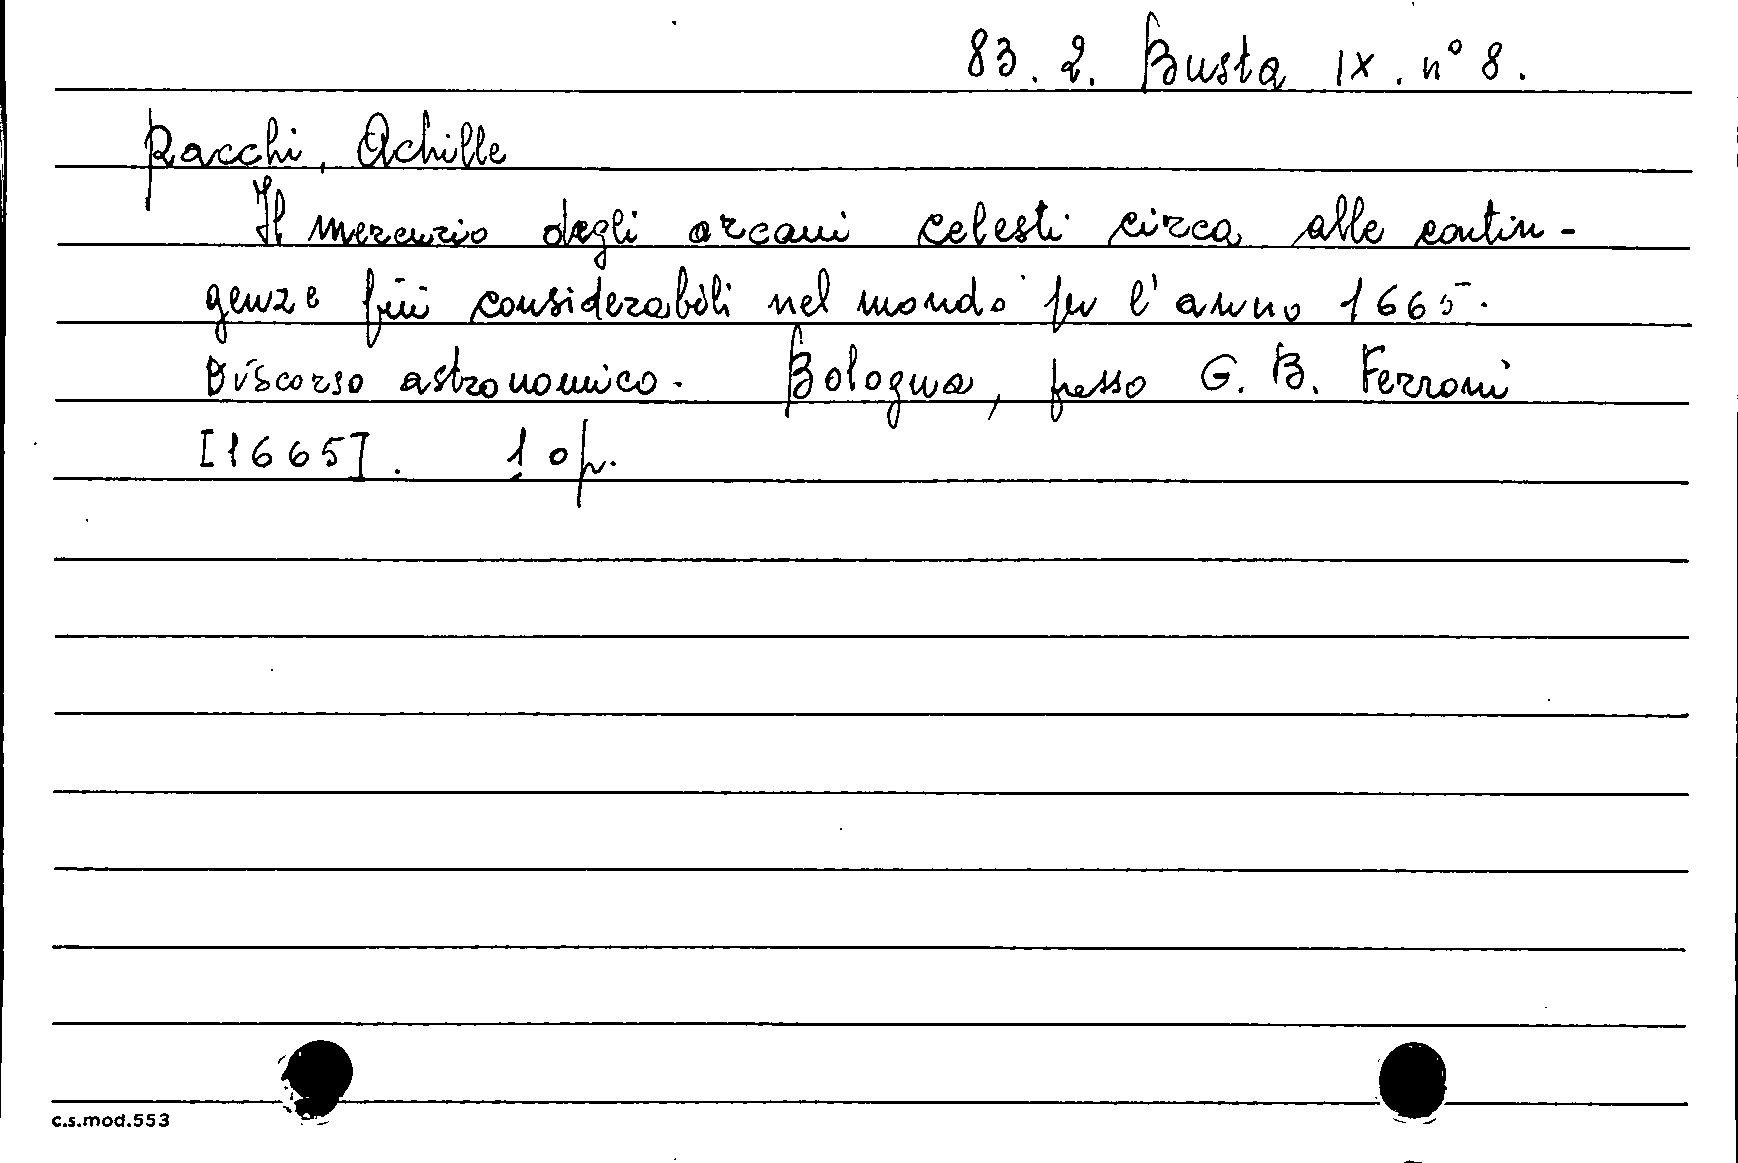 83. 2. Busta IX. n° 8.
Racchi, Achille
Il mercurio degli arcani celesti circa alle contin-
genze più considerabili nel mondo per l'anno 1665.
Discorso astronomico. Bologna, presso G. B. Ferroni
[1665]. 1 op.
c.s.mod.553